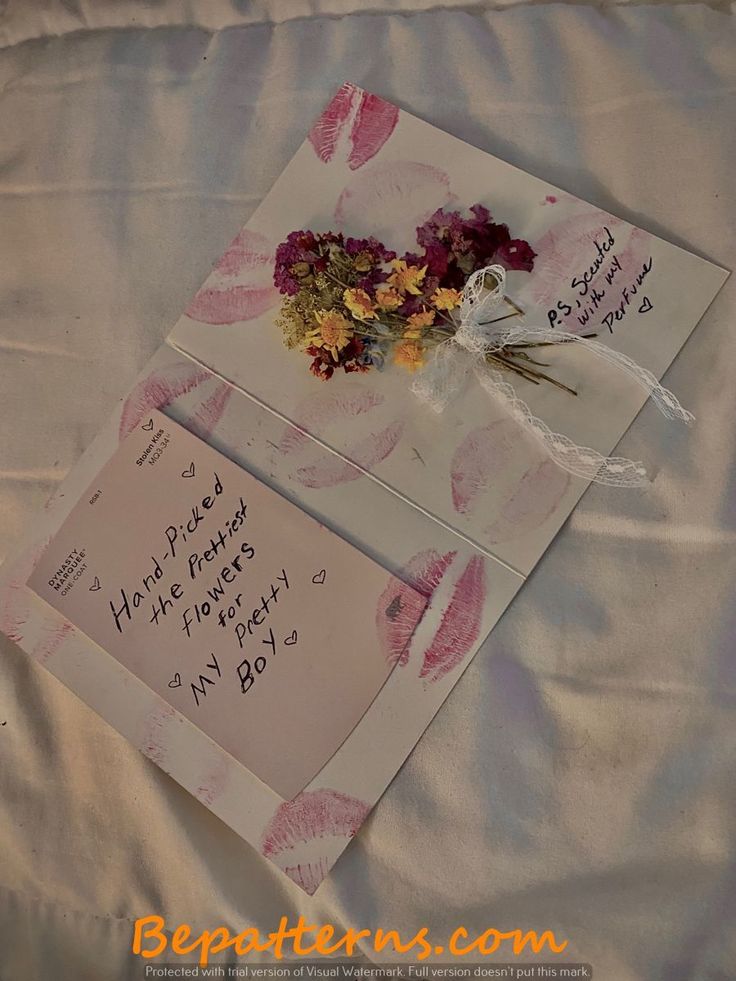 P.S, Scented
with my
Perfume
Stolen Kiss
MQ3-34
RGB-1
DYNASTY
MARQUEE®
ONE-COAT
Hand-Picked
the Prettiest
Flowers
for
My Pretty
Boy
Bepatterns.com
Protected with trial version of Visual Watermark. Full version doesn't put this mark.